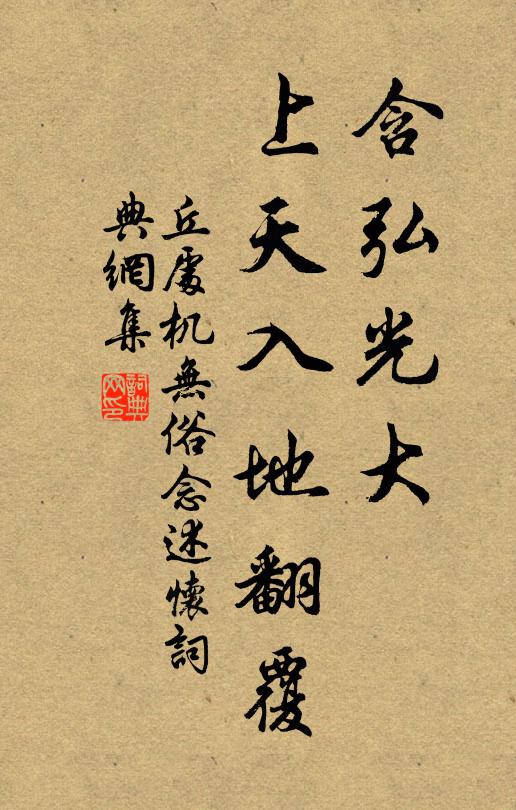 含弘光大
上天入地翻覆
丘處机無俗念述懷詞
典網集
詞典
网印